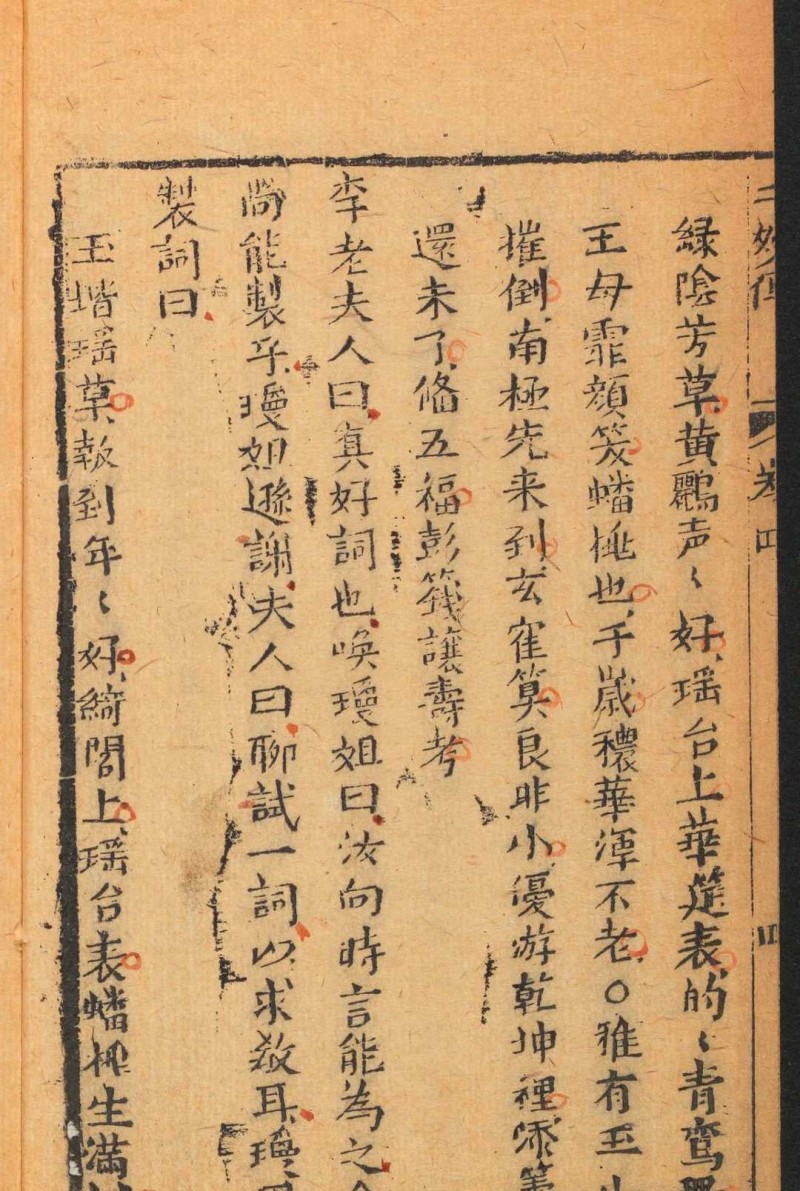 三妙傳 卷四 四
緑陰芳草黄鸝声〻好瑶台上華筵表的〻青鸾
王母霏顔笑蟠桃也千歳穠華渾不老○雅有玉山
摧倒南極先来到玄隺筭良非小優游乾坤裡添籌
還未了俻五福彭籛讓壽考
李老夫人曰真好詞也喚瓊姐曰汝向時言能為之今
尚能製乎瓊姐遜謝夫人曰聊試一詞以求教耳瓊
製詞曰
玉堦瑶草報到年〻好綺閣上瑶台表蟠桃生滿